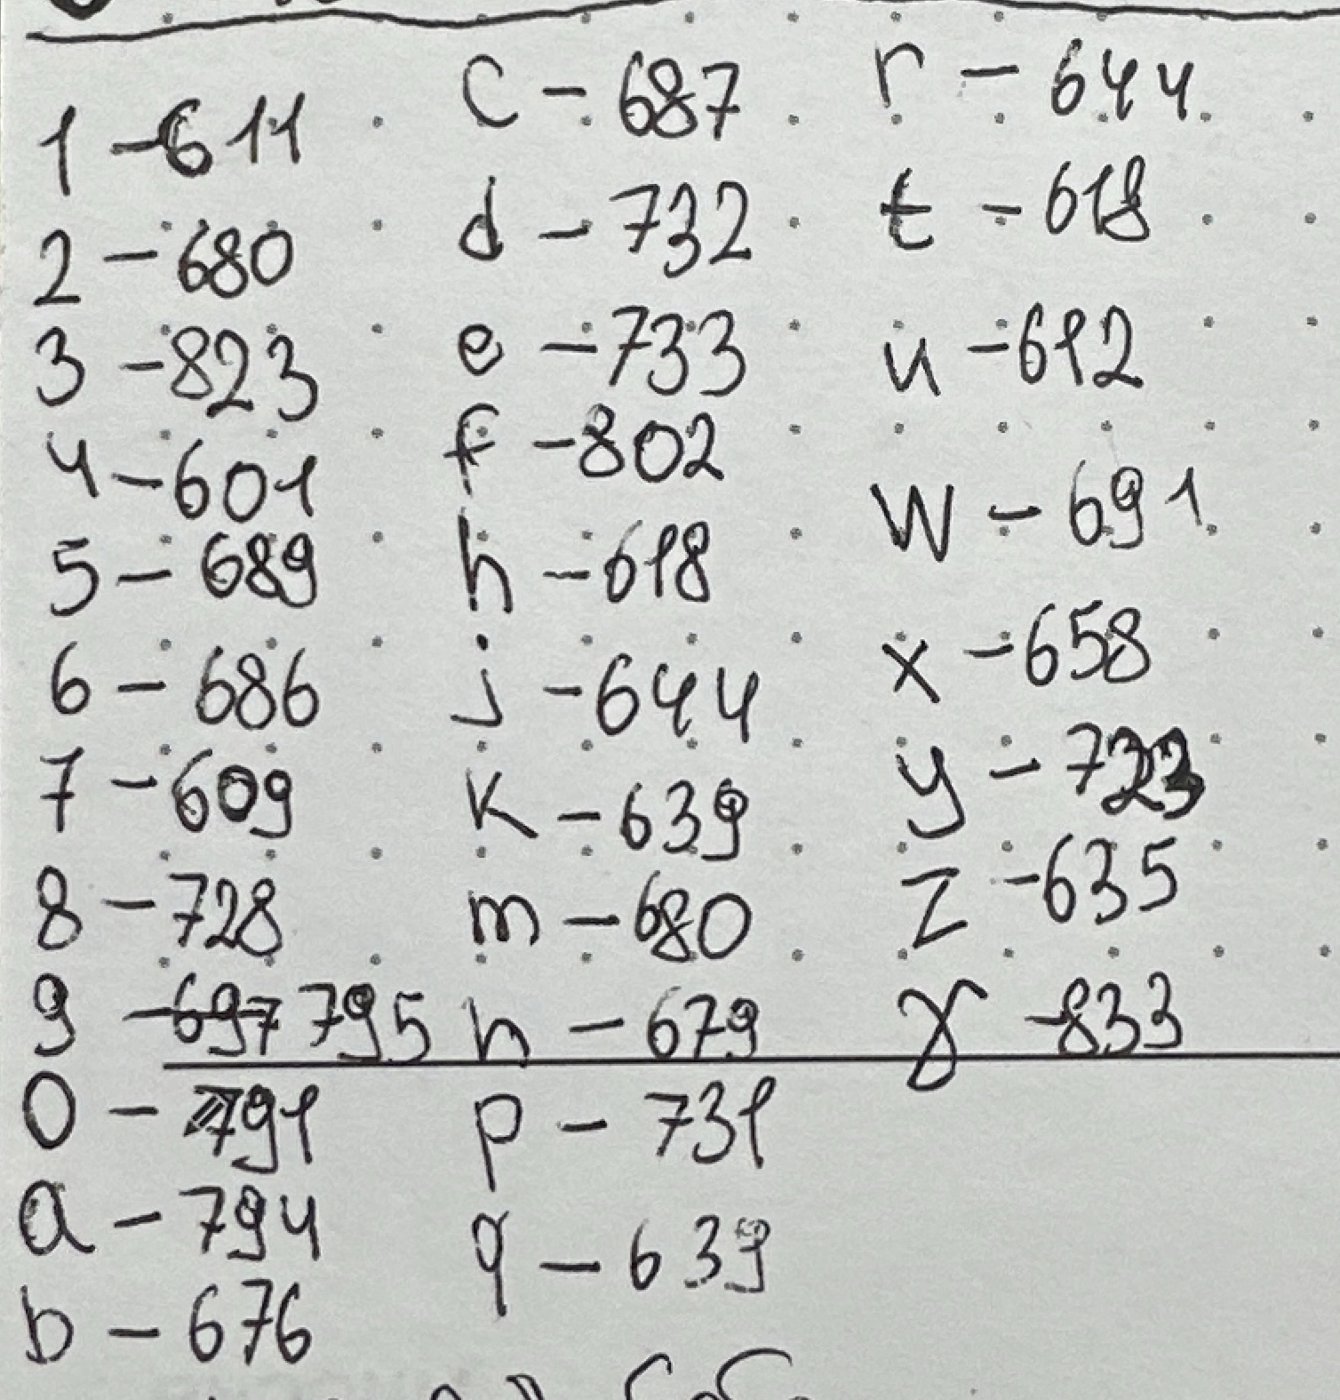 1 - 611
2 - 680
3 - 823
4 - 601
5 - 689
6 - 686
7 - 609
8 - 728
9 - 697 795
0 - 791
a - 794
b - 676
c - 687
d - 732
e - 733
f - 802
h - 618
j - 644
k - 639
m - 680
n - 679
p - 731
q - 639
r - 644
t - 618
u - 612
w - 691
x - 658
y - 723
z - 635
γ - 833